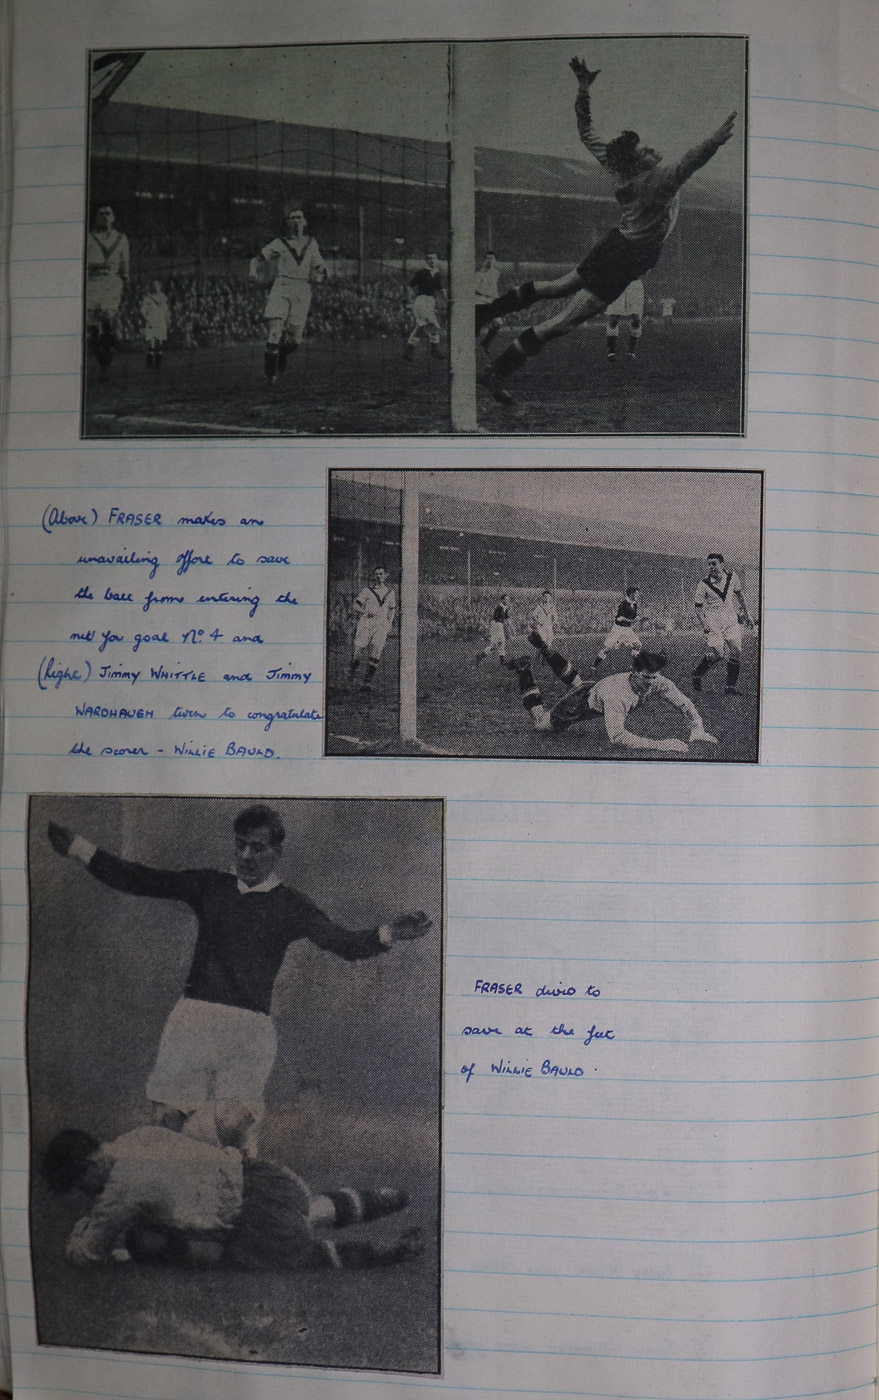 (Above) FRASER makes an
unavailing effort to save
the ball from entering the
net for goal No. 4 and
(Right) JIMMY WHITTLE and JIMMY
WARDHAUGH turn to congratulate
the scorer - WILLIE BAULD.
FRASER dives to
save at the feet
of WILLIE BAULD.